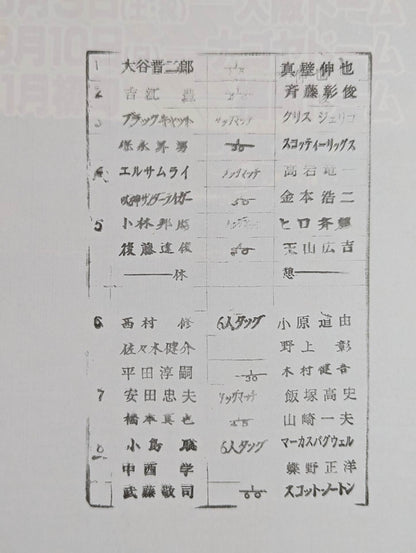 1 大谷晋二郎 1/30 真壁伸也
2 吉江豊 斉藤彰俊
3 ブラックキャット タッグマッチ クリスジェリコ
保永昇男 1/30 スコッティーリッグス
4 エルサムライ タッグマッチ 高岩竜一
獣神サンダーライガー 1/30 金本浩二
5 小林邦昭 タッグマッチ ヒロ斉藤
後藤達俊 1/30 天山広吉
休憩
6 西村修 6人タッグ 小原道由
佐々木健介 野上彰
平田淳嗣 1/30 木村健吾
7 安田忠夫 タッグマッチ 飯塚高史
橋本真也 山崎一夫
8 小島聡 6人タッグ マーカスバグウェル
中西学 蝶野正洋
武藤敬司 1/60 スコットノートン